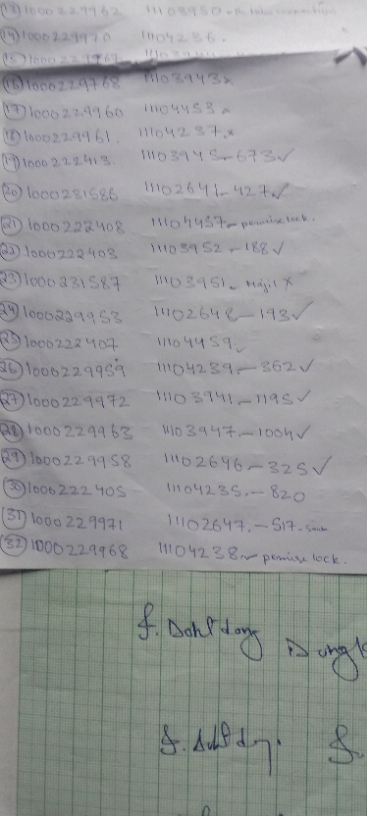 (13) 1000229962 11103950 -
(14) 1000229970 11104236.
(15) 1000229967
(16) 1000229768 11103943 x
(17) 1000229960 11104453 x
(18) 1000229961. 11104237. x
(19) 1000222413 11103945 - 673 ✓
(20) 1000231586 11102641 - 427 ✓
(21) 1000222408 11104457 - premise lock.
(22) 1000222403 11103952 - 188 ✓
(23) 1000231587 11103951 - Majil X
(24) 1000229953 11102648 - 193 ✓
(25) 1000222407 11104459
(26) 1000229959 11104239 - 362 ✓
(27) 1000229972 11103941 - 1195 ✓
(28) 1000229963 11103947 - 1004 ✓
(29) 1000229958 11102696 - 325 ✓
(30) 1000222405 11104235 - 820
(31) 1000229971 11102647 - 517.
(32) 1000229968 11104238 - premise lock.